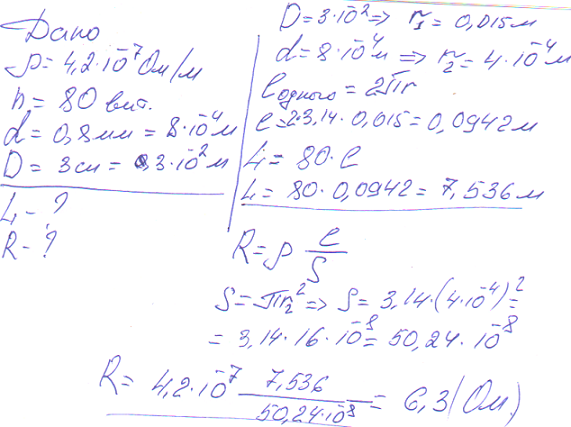 Дано
ρ = 4,2·10⁻⁷ Ом/м
n = 80 вит.
d = 0,8мм = 8·10⁻⁴м
D = 3см = 3·10⁻²м
L - ?
R - ?
D = 3·10⁻² ⇒ r₁ = 0,015м
d = 8·10⁻⁴м ⇒ r₂ = 4·10⁻⁴м
ℓодного = 2πr
ℓ = 2·3,14·0,015 = 0,0942м
L = 80·ℓ
L = 80·0,0942 = 7,536м
R = ρ ℓ/S
S = πr₂² ⇒ S = 3,14·(4·10⁻⁴)² =
= 3,14·16·10⁻⁸ = 50,24·10⁻⁸
R = 4,2·10⁻⁷ 7,536/50,24·10⁻⁸ = 6,3(Ом)